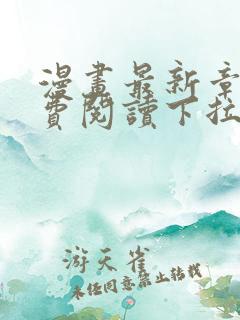 漫畫最新章
費閱讀下拉
游天雀
未經同意禁止轉載